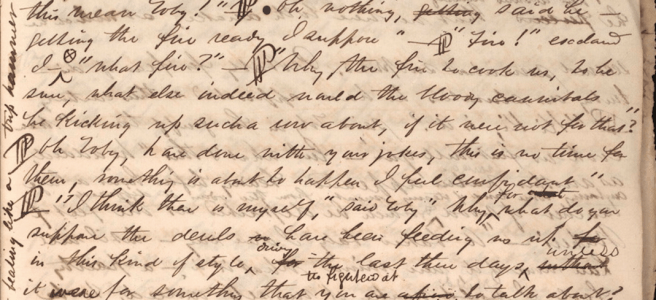 this mean Toby?" "oh nothing, getting said he
getting the fire ready I suppose" — "Fire!" exclaimd
I — "what fire?" — "Why, the fire to cook us, to be
sure, what else indeed would the bloody cannibals
be kicking up such a row about, if it were not for that?"
"oh Toby, have done with your jokes, this is no time for
them, something is about to happen I feel confident"
"I think ther is myself," said Toby" Why, for what do you
suppose the devels have been feeding us up
in this kind of style, during for the last three days, unless
it were for something that you are to frightend at to talk about?
beating like a trip hammer